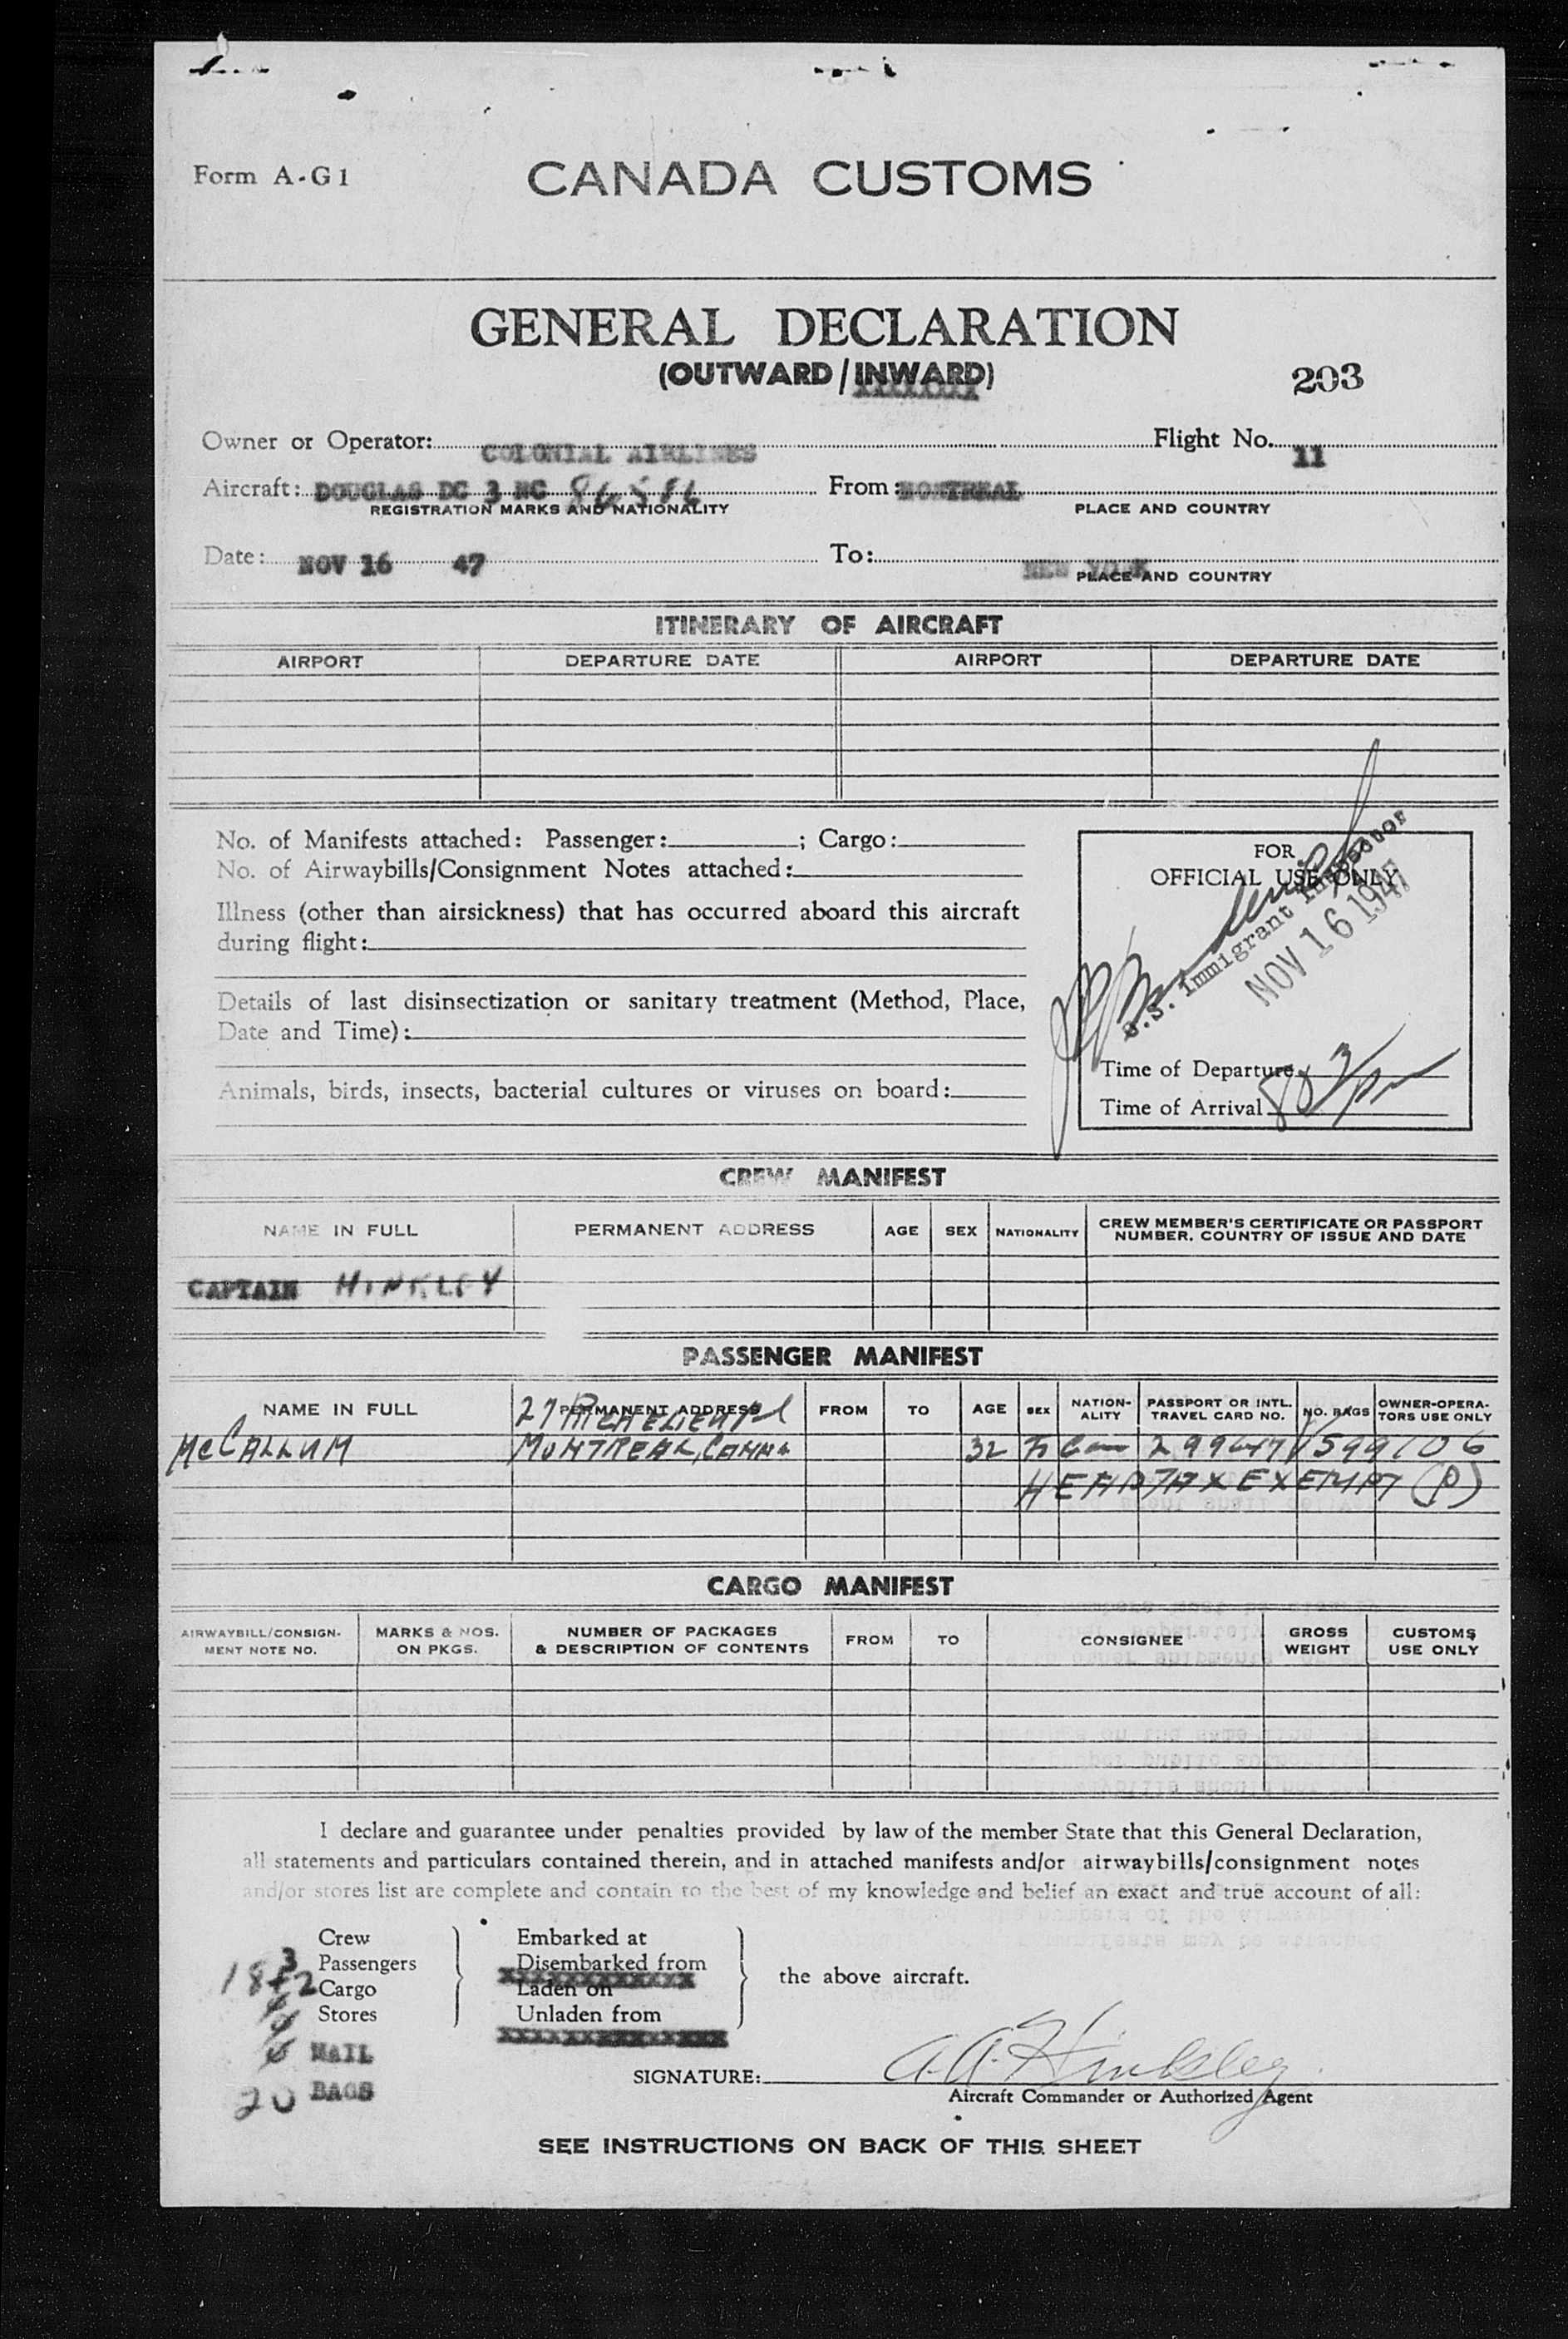 Form A-G1
CANADA CUSTOMS
GENERAL DECLARATION
(OUTWARD / INWARD)
203
Owner or Operator: COLONIAL AIRLINES Flight No. 11
Aircraft: DOUGLAS DC 3 NC From: MONTREAL
REGISTRATION MARKS AND NATIONALITY PLACE AND COUNTRY
Date: NOV 16 47 To: NEW YORK
PLACE AND COUNTRY
ITINERARY OF AIRCRAFT
AIRPORT DEPARTURE DATE AIRPORT DEPARTURE DATE
No. of Manifests attached: Passenger: ; Cargo:
No. of Airwaybills/Consignment Notes attached:
Illness (other than airsickness) that has occurred aboard this aircraft
during flight:
Details of last disinsectization or sanitary treatment (Method, Place,
Date and Time):
Animals, birds, insects, bacterial cultures or viruses on board:
FOR
OFFICIAL USE ONLY
U.S. Immigrant Inspector
NOV 16 1947
Time of Departure
Time of Arrival
CREW MANIFEST
NAME IN FULL PERMANENT ADDRESS AGE SEX NATIONALITY CREW MEMBER'S CERTIFICATE OR PASSPORT
NUMBER, COUNTRY OF ISSUE AND DATE
CAPTAIN HINKLEY
PASSENGER MANIFEST
NAME IN FULL PERMANENT ADDRESS FROM TO AGE SEX NATION-
ALITY PASSPORT OR INTL.
TRAVEL CARD NO. NO. BAGS OWNER-OPERA-
TORS USE ONLY
27 RICHELIEU Pl
McCALLUM MONTREAL, CANNA 32 Can 299647 599106
HEADTAX EXEMPT (P)
CARGO MANIFEST
AIRWAYBILL/CONSIGN-
MENT NOTE NO. MARKS & NOS.
ON PKGS. NUMBER OF PACKAGES
& DESCRIPTION OF CONTENTS FROM TO CONSIGNEE GROSS
WEIGHT CUSTOMS
USE ONLY
I declare and guarantee under penalties provided by law of the member State that this General Declaration,
all statements and particulars contained therein, and in attached manifests and/or airwaybills/consignment notes
and/or stores list are complete and contain to the best of my knowledge and belief an exact and true account of all:
3 Crew Embarked at
18+2 Passengers Disembarked from
Cargo Laden on the above aircraft.
Stores Unladen from
MAIL
20 BAGS
SIGNATURE: A. A. Hinkley
Aircraft Commander or Authorized Agent
SEE INSTRUCTIONS ON BACK OF THIS SHEET